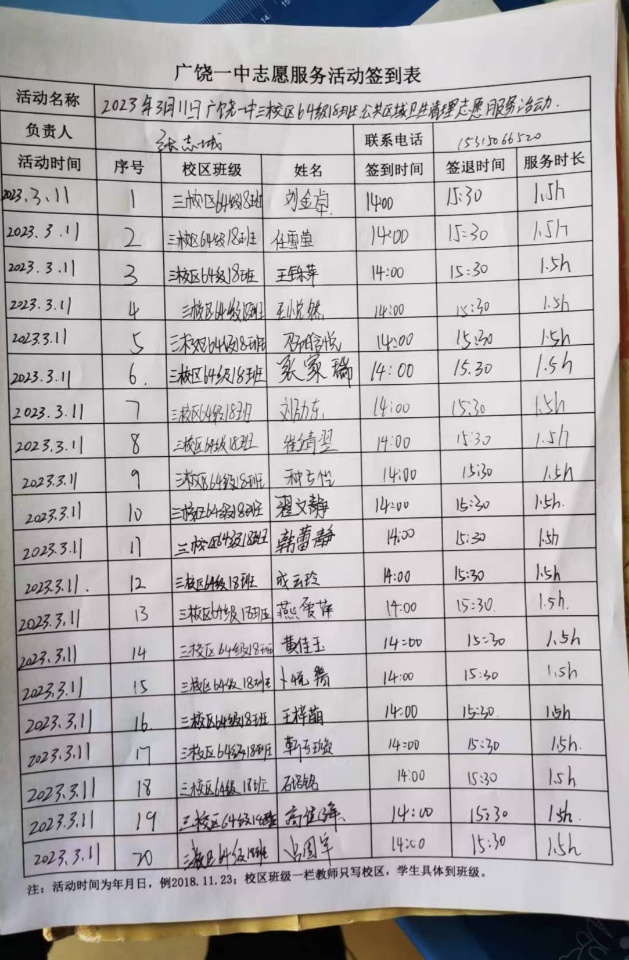 广饶一中志愿服务活动签到表
活动名称 2023年3月11日广饶一中三校区64级18班公共区域卫生清理志愿服务活动.
负责人 张志城 联系电话 15315066520
活动时间 序号 校区班级 姓名 签到时间 签退时间 服务时长
2023.3.11 1 三校区64级18班 刘金卓 14:00 15:30 1.5h
2023.3.11 2 三校区64级18班 任雪莹 14:00 15:30 1.5h
2023.3.11 3 三校区64级18班 14:00 15:30 1.5h
2023.3.11 4 三校区64级18班 王悦然 14:00 15:30 1.5h
2023.3.11 5 三校区64级18班 14:00 15:30 1.5h
2023.3.11 6. 三校区64级18班 张家瑞 14:00 15.30 1.5h
2023.3.11 7 三校区64级18班 刘励东 14:00 15:30 1.5h
2023.3.11 8 三校区64级18班 崔靖翌 14:00 15:30 1.5h
2023.3.11 9 三校区64级18班 14:00 15:30 1.5h
2023.3.11 10 三校区64级18班 翟文静 14:00 15:30 1.5h.
2023.3.11 11 三校区64级18班 韩蕾静 14:00 15:30 1.5h
2023.3.11. 12 三校区64级18班 成云玲 14:00 15:30 1.5h
2023.3.11 13 三校区64级18班 燕雯萍 14:00 15:30. 1.5h.
2023.3.11 14 三校区64级18班 黄佳玉 14:00 15:30 1.5h
2023.3.11 15 三校区64级18班 14:00 15:30 1.5h
2023.3.11 16 三校区64级18班 王梓萌 14:00 15:30 1.5h
2023.3.11 17 三校区64级18班 14:00 15:30 1.5h.
2023.3.11 18 三校区64级18班 14:00 15:30 1.5h
2023.3.11 19 三校区64级18班 14:00 15:30 1.5h.
2023.3.11 20 三校区64级18班 14:00 15:30 1.5h
注：活动时间为年月日，例2018.11.23；校区班级一栏教师只写校区，学生具体到班级。